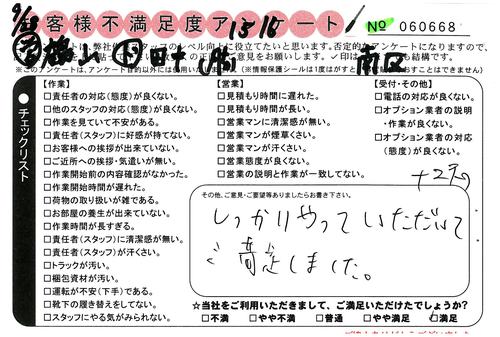 9/23
お客様不満足度アンケート
1515
No 060668
弊社
レベル向上に役立てたいと思います。否定的なアンケートになりますので、
意見をお願いします。✓印は
結構です。
※このアンケートは、アンケート目的以外には使用いたしません
(※情報保護シールは1度がはすと
南区
チェックリスト
【作業】
□責任者の対応(態度)が良くない。
□他のスタッフの対応(態度)が良くない。
□作業を見ていて不安がある。
□責任者(スタッフ)に好感が持てない。
□お客様への挨拶が出来ていない。
□ご近所への挨拶・気遣いが無い。
□作業開始前の内容確認がなかった。
□作業開始時間が遅れた。
□荷物の取り扱いが雑である。
□お部屋の養生が出来ていない。
□作業時間が長すぎる。
□責任者(スタッフ)に清潔感が無い。
□責任者(スタッフ)が汗くさい。
□トラックが汚い。
□梱包資材が汚い。
□運転が不安(下手)である。
□靴下の履き替えをしてない。
□スタッフにやる気がみられない。
【営業】
□見積もり時間に遅れた。
□見積もり時間が長い。
□営業マンに清潔感が無い。
□営業マンが煙草くさい。
□営業マンが汗くさい。
□営業態度が良くない。
□営業の説明と作業が一致してない。
【受付・その他】
□電話の対応が良くない。
□オプション業者の説明・作業が良くない。
□オプション業者の対応(態度)が良くない。
その他、ご意見・ご要望等ありましたらお書き下さい。
しっかりやっていただいて
満足しました。
☆当社をご利用いただきまして、ご満足いただけたでしょうか?
□不満 □やや不満 □普通 □やや満足 □満足